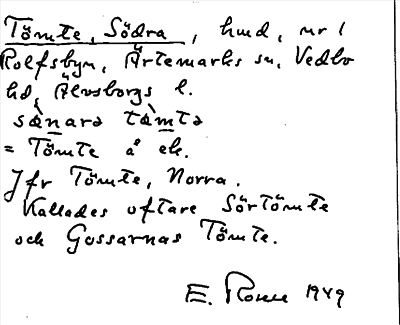 Tömte, Södra, hmd, nr 1
Rolfsbyn, Ärtemarks sn, Vedbo
hd, Älvsborgs l.
sø̀narə tø̀mtə
= Tömte å ek.
Jfr Tömte, Norra.
Kallades oftare Sörtömte
och Gossarnas Tömte.
E. 1949